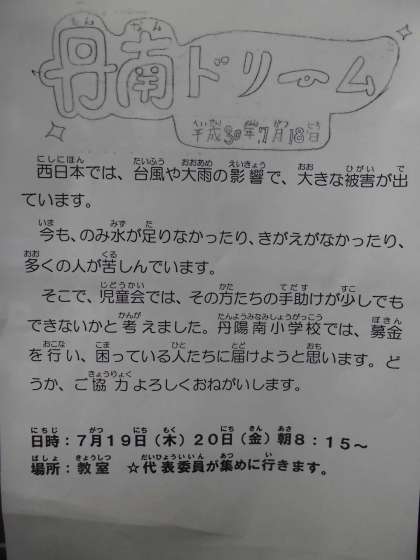 丹南ドリーム
平成30年7月18日
西日本では、台風や大雨の影響で、大きな被害が出
ています。
今も、のみ水が足りなかったり、きがえがなかったり、
多くの人が苦しんでいます。
そこで、児童会では、その方たちの手助けが少しでも
できないかと考えました。丹陽南小学校では、募金
を行い、困っている人たちに届けようと思います。ど
うか、ご協力よろしくおねがいします。
日時：7月19日（木）20日（金）朝8：15～
場所：教室　☆代表委員が集めに行きます。